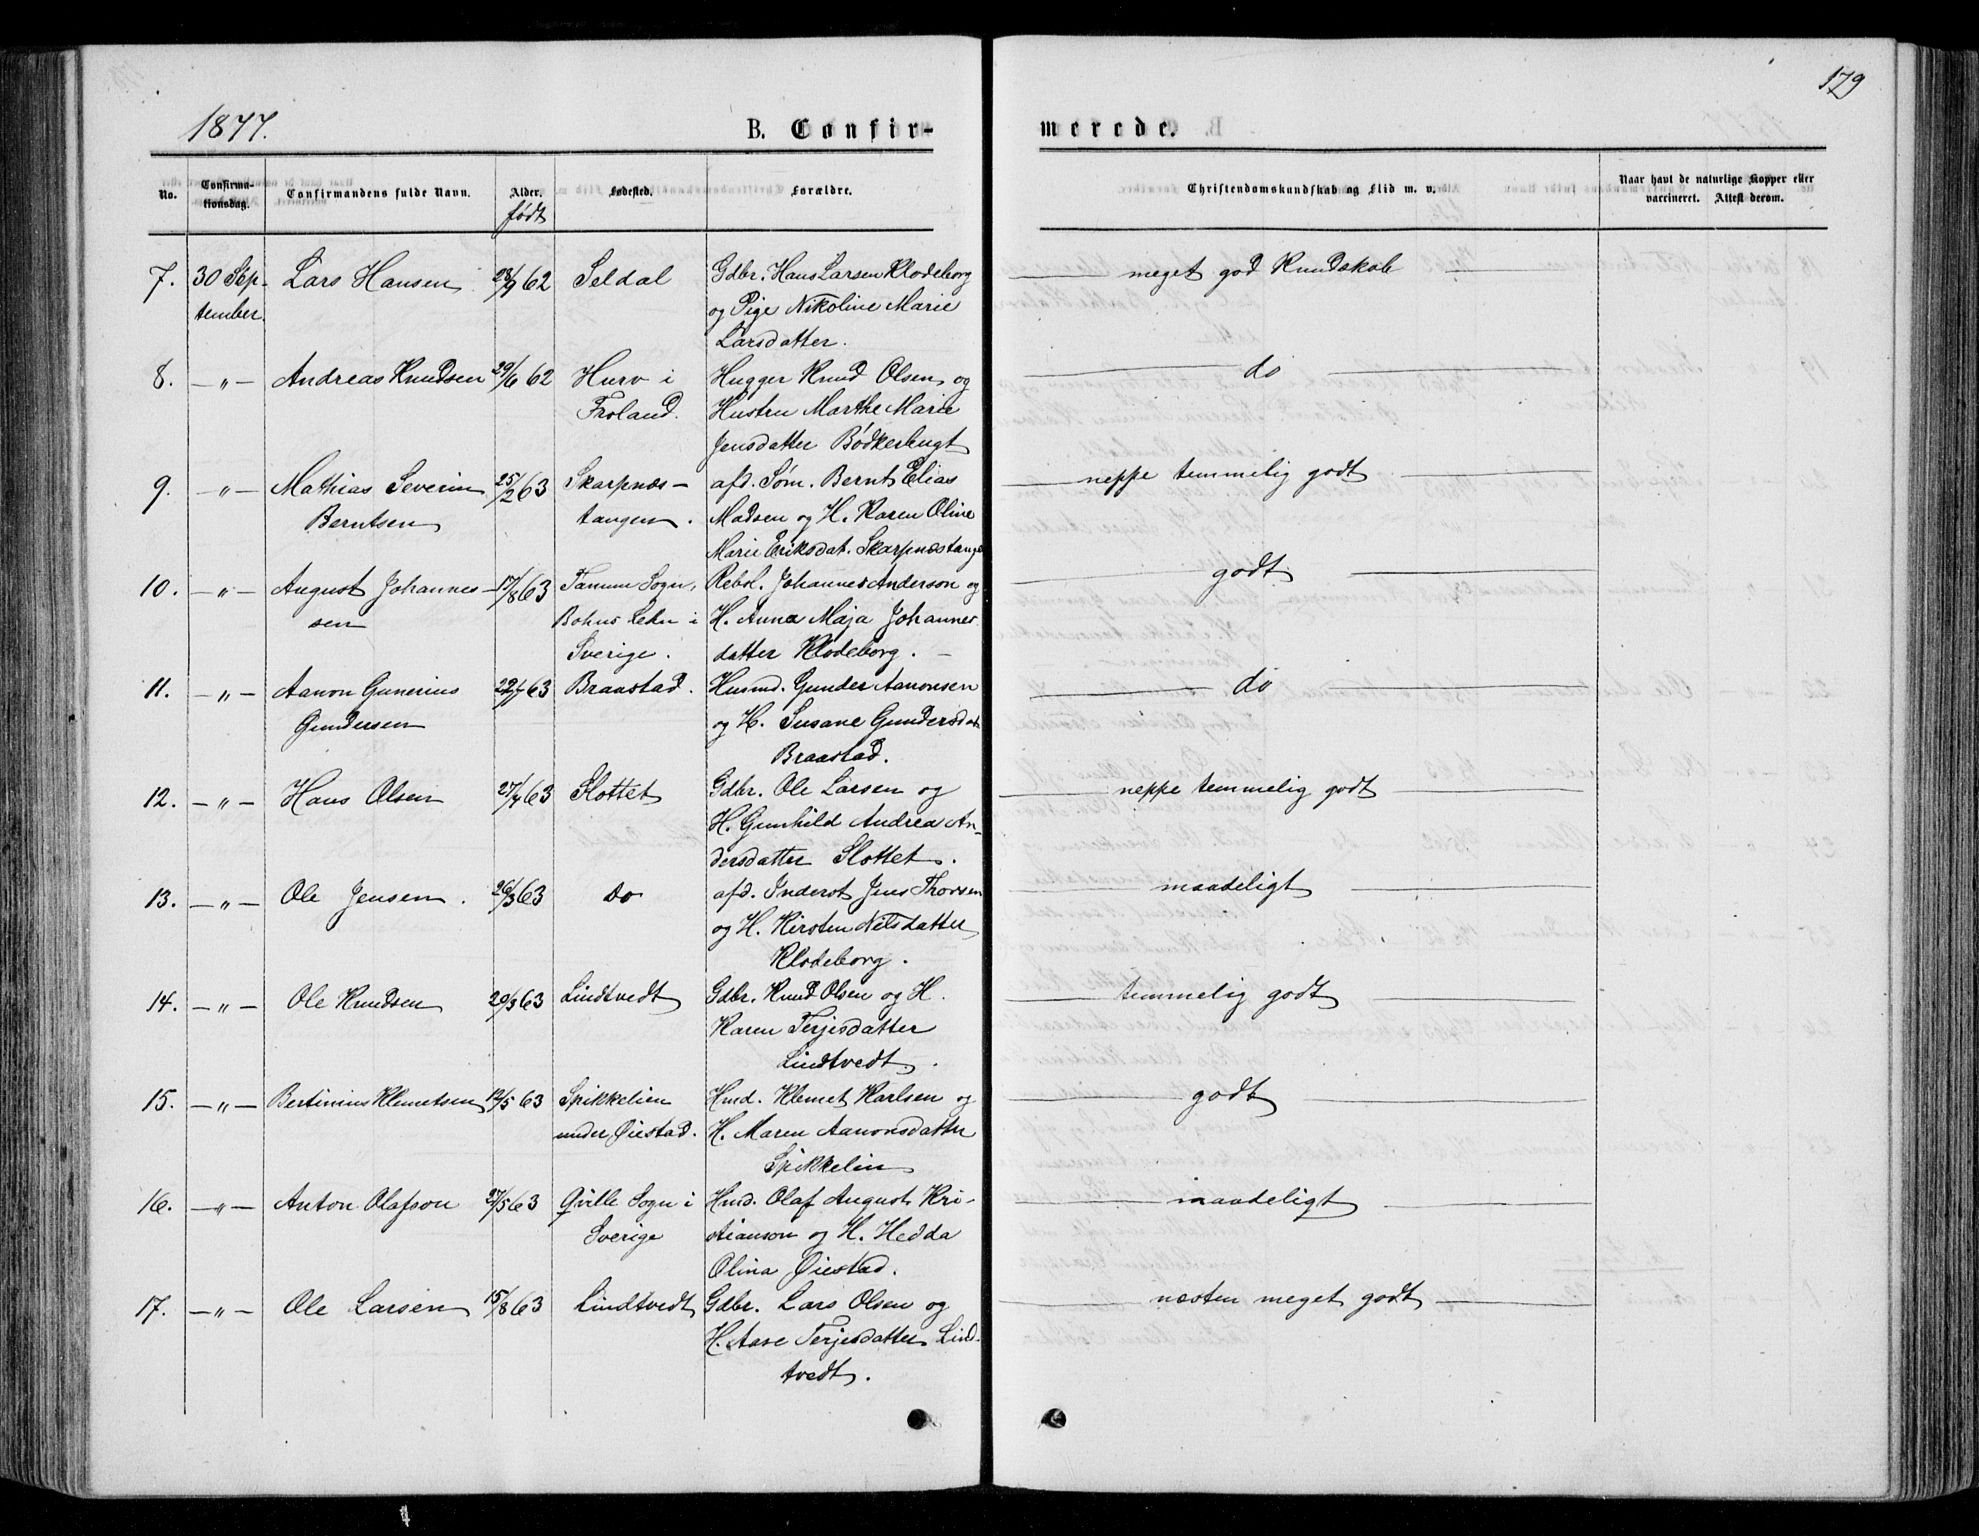 179
1877.
B. Confirmerede.
No. Confirmationsdag. Confirmandens fulde Navn. Alder. født Fødested. Forældre. Christendomskundskab og Flid m. v. Naar havt de naturlige Kopper eller vaccineret. Attest derom.
7. 30 Sep- Lars Hansen 28/9 62 Seldal Gdbr. Hans Larsen Klodeborg meget god Kundskab
tember. og Pige Nikoline Marie
Larsdatter.
8. —„— Andreas Knudsen 29/6 62 Hurv i Hugger Knud Olsen og do
Froland. Hustru Marthe Marie
Jensdatter Bödkerbugt
9. —„— Mathias Severin 25/2 63 Skarpnæs- afd. Søm. Bernt Elias neppe temmelig godt
Berntsen tangen. Madsen og H. Karen Oline
Marie Eriksdat. Skarpnæstange
10. —„— August Johannes- 17/8 63 Tanum Sogn, Rebsl. Johannes Anderson og godt
sen Bohus Lehn i H. Anna Maja Johannes
Sverige. datter Klodeborg.
11. —„— Aanon Gunerius 22/7 63 Braastad. Husmd. Gunder Aanonsen do
Gundersen og H. Susane Gundersdat
Braastad.
12. —„— Hans Olsen 27/4 63 Slottet Gdbr. Ole Larsen og neppe temmelig godt
H. Gunhild Andrea An-
dersdatter Slottet.
13. —„— Ole Jensen. 26/3 63 Do afd. Inderst Jens Thorsen maadeligt
og H. Kirsten Nilsdatter
Klodeborg.
14. —„— Ole Knudsen 20/3 63 Lindtvedt Gdbr. Knud Olsen og H. temmelig godt
Karen Terjesdatter
Lindtvedt.
15. —„— Bertinius Klemetsen 12/5 63 Spikkelien Hmd. Klemet Karlsen og godt
under Øiestad. H. Maren Aanonsdatter
Spikkelin
16. —„— Anton Olafson 27/5 63 Qville Sogn i Hmd. Olaf August Kri- maadeligt
Sverige stianson og H. Hedda
Olina Øiestad.
17. —„— Ole Larsen 15/8 63 Lindtvedt Gdbr. Lars Olsen og næsten meget godt
H. Aase Terjesdatter Lind-
tvedt.